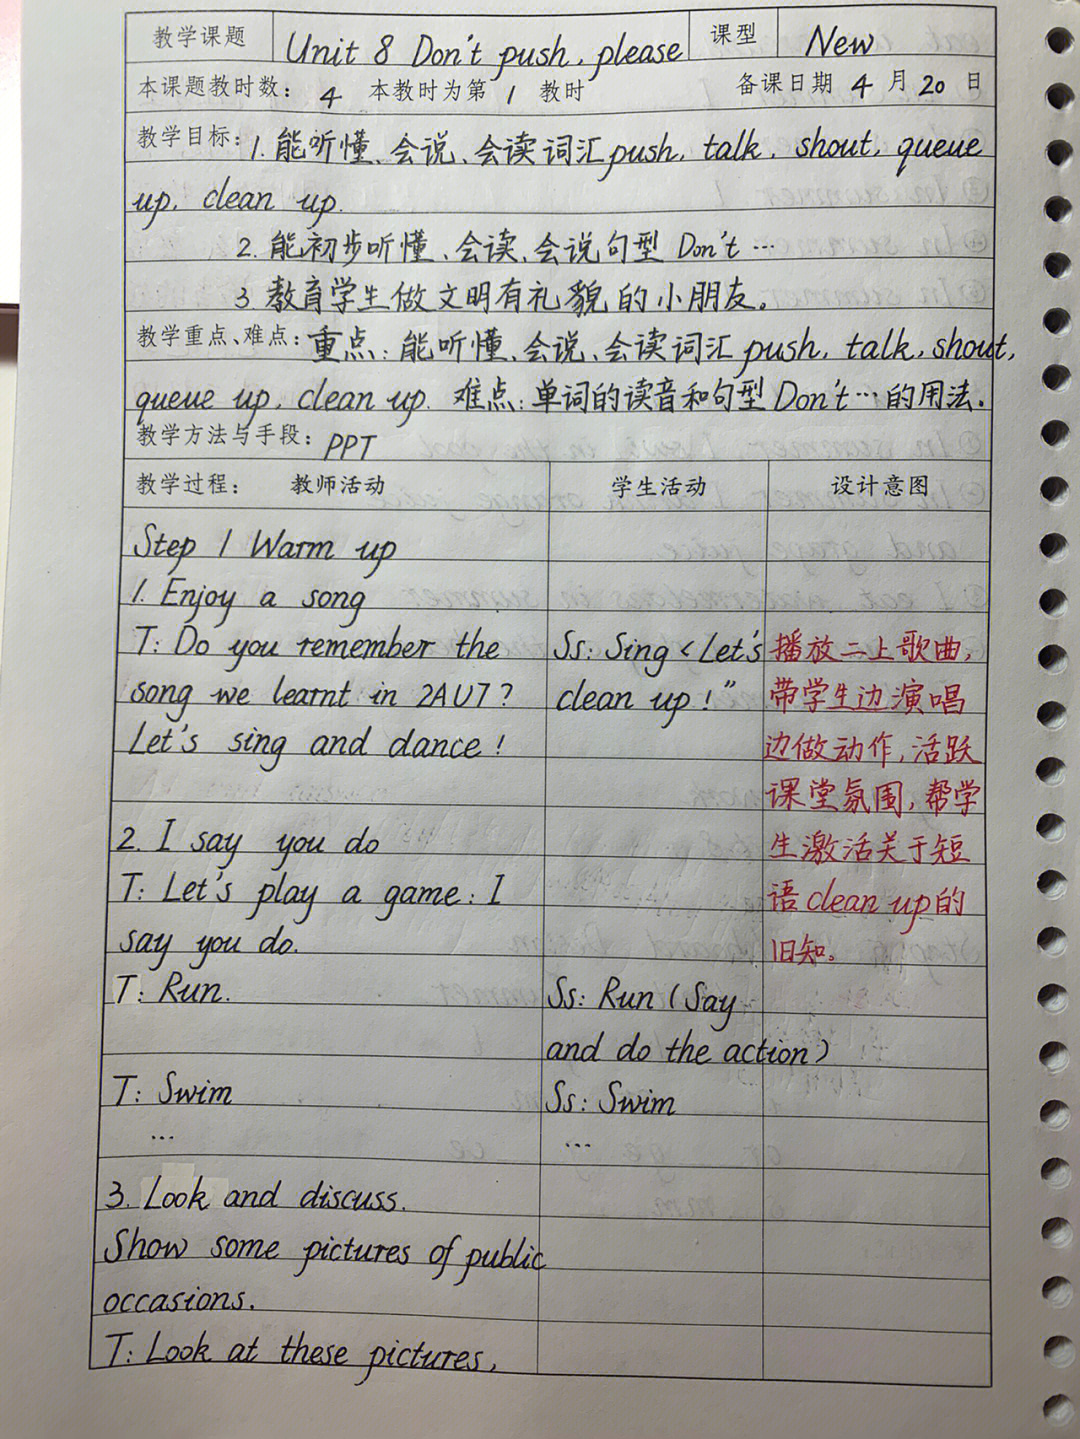 教学课题 Unit 8 Don't push, please 课型 New
本课题教时数: 4 本教时为第 1 教时 备课日期 4 月 20 日
教学目标: 1. 能听懂、会说、会读词汇push, talk, shout, queue
up, clean up.
2. 能初步听懂、会读、会说句型 Don't …
3. 教育学生做文明有礼貌的小朋友。
教学重点、难点: 重点: 能听懂、会说、会读词汇push, talk, shout,
queue up, clean up. 难点: 单词的读音和句型Don't…的用法.
教学方法与手段: PPT
教学过程: 教师活动 学生活动 设计意图
Step 1 Warm up
1. Enjoy a song
T: Do you remember the Ss: Sing < Let's 播放二上歌曲,
song we learnt in 2AU7? clean up!" 带学生边演唱
Let's sing and dance! 边做动作,活跃
课堂氛围,帮学
2. I say you do 生激活关于短
T: Let's play a game: I 语clean up的
say you do. 旧知。
T: Run. Ss: Run (Say
and do the action)
T: Swim Ss: Swim
… …
3. Look and discuss.
Show some pictures of public
occasions.
T: Look at these pictures,